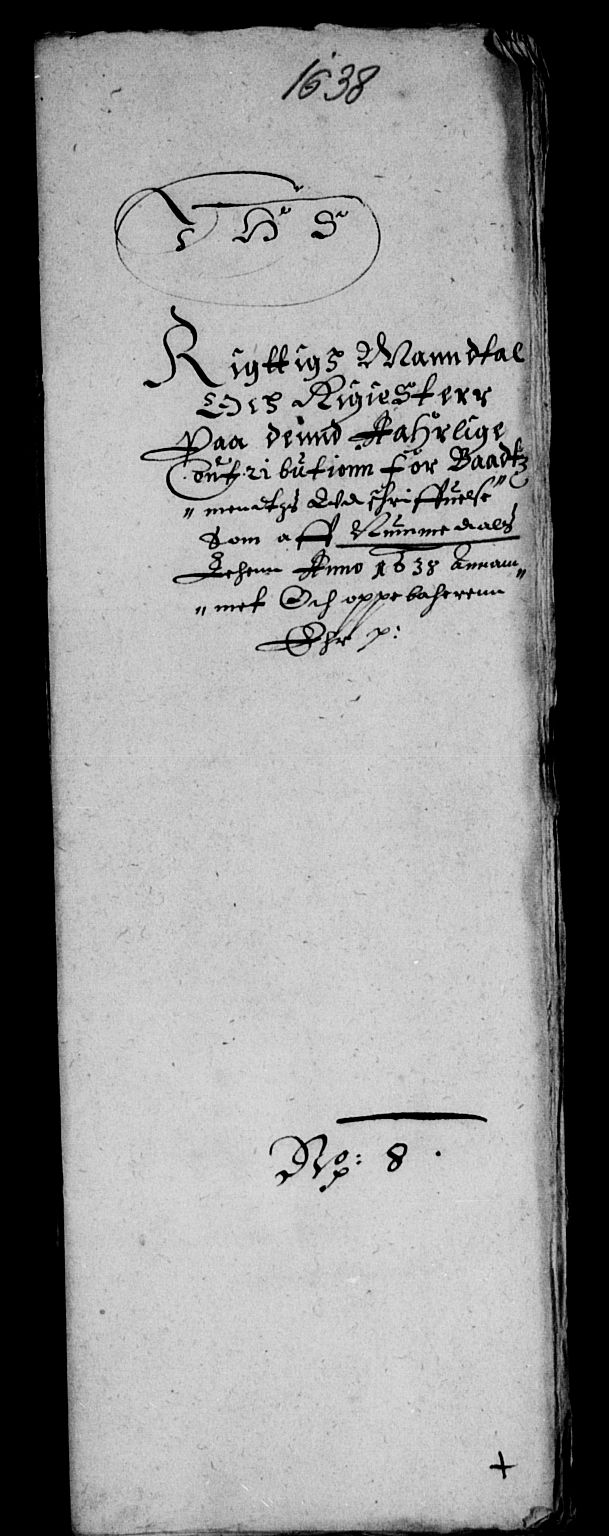 1638
I H S
Rigttigs Manndtal
Och Rigiesterr
Paa dennd Aahrlige
Contributionn för Baadtz
mendtzs Vdschriffuelse
Som aff Nummedals
Lehenn Anno 1638 Annam
met Och oppebaherenn
Ehr p:
No: 8.
+